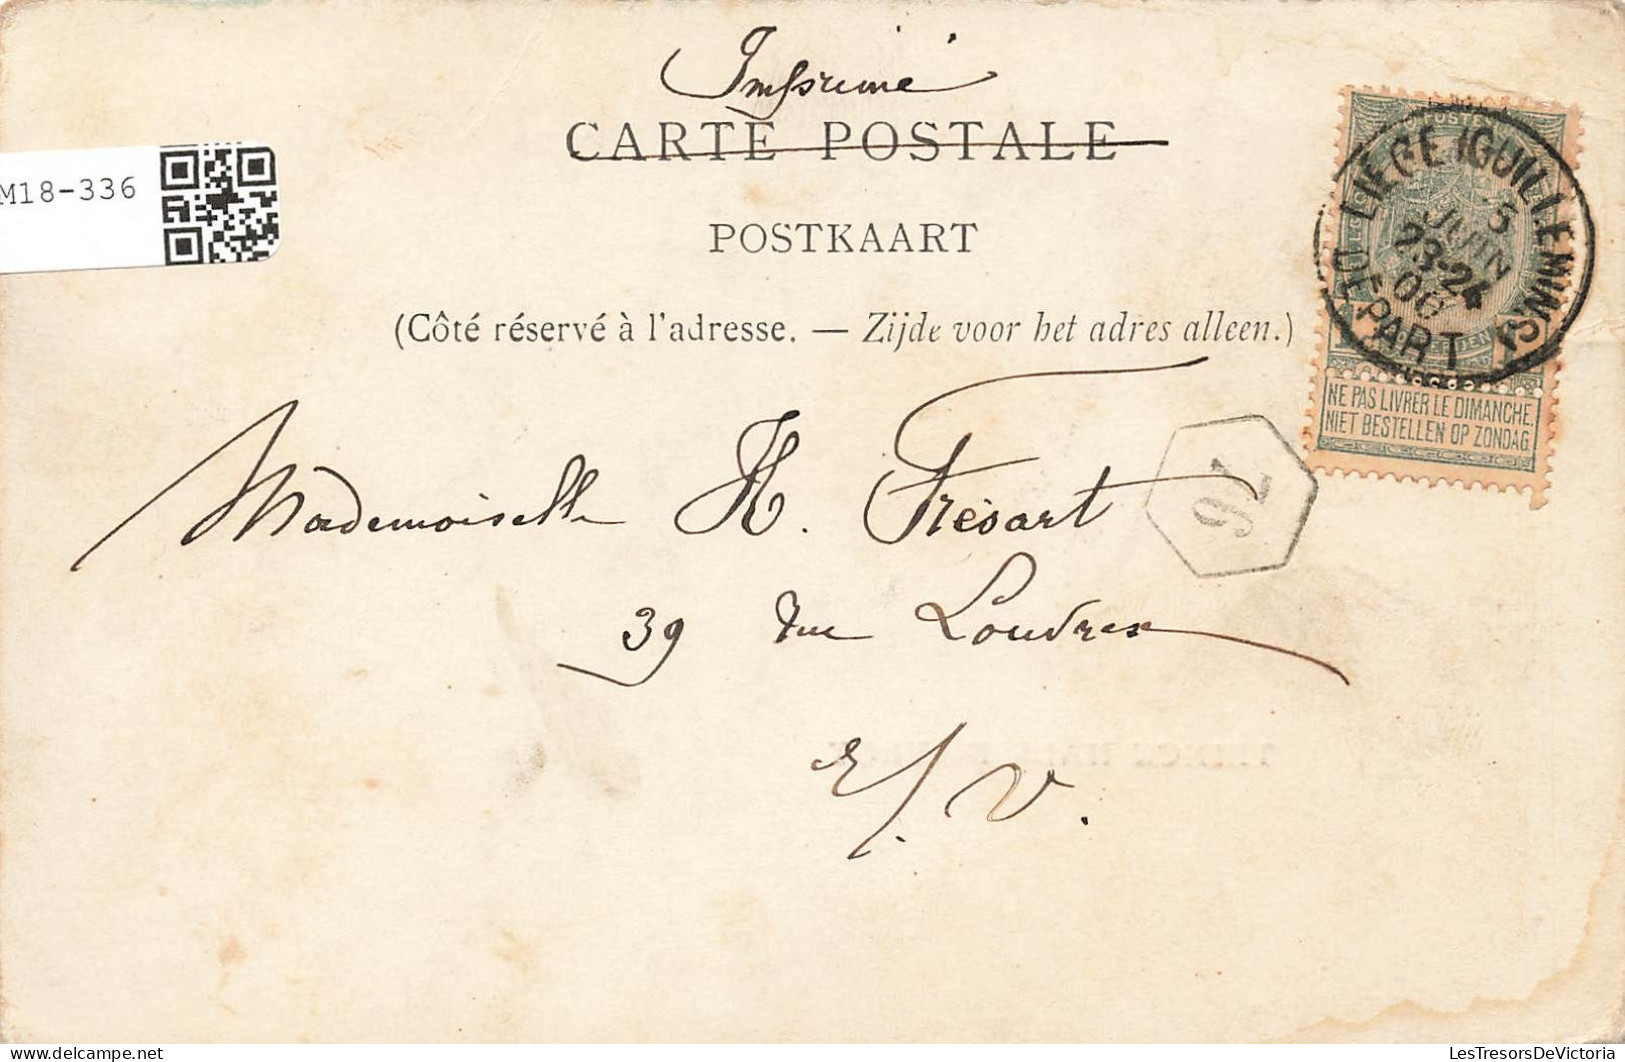 Imprimé
CARTE POSTALE
M18-336
POSTKAART
(Côté réservé à l'adresse. — Zijde voor het adres alleen.)
LIÈGE (GUILLEMINS)
5
JUIN
23-24
06
DÉPART
NE PAS LIVRER LE DIMANCHE.
NIET BESTELLEN OP ZONDAG
Mademoiselle H. Frésart
39 rue Loudrex
E/V.
LesTresorsDeVictoria